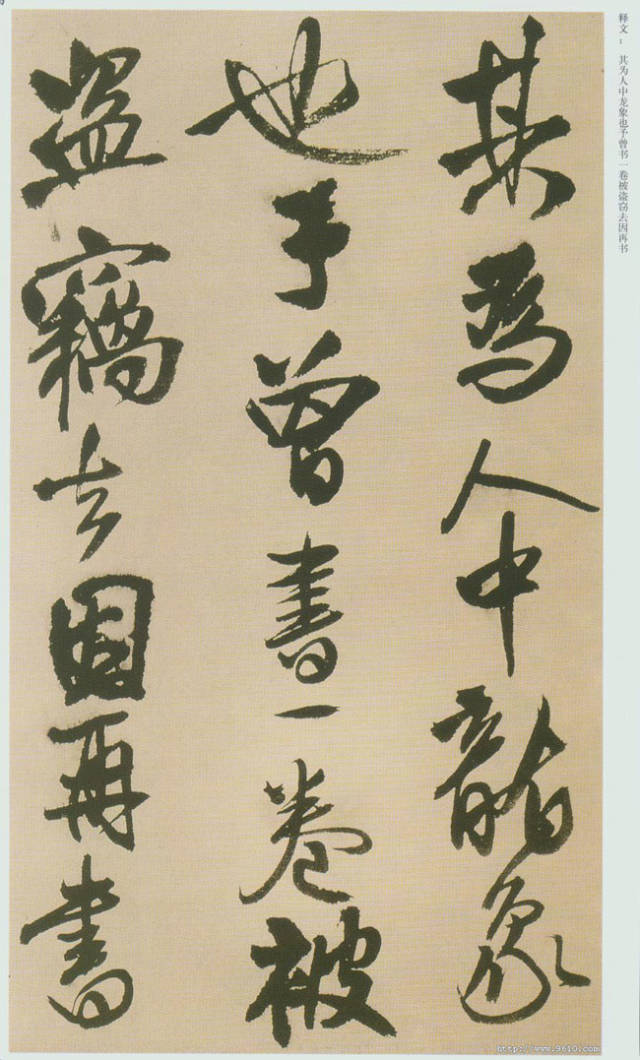 其為人中龍象
也予曾書一卷被
盜竊去因再書
释文：其为人中龙象也予曾书一卷被盗窃去因再书
http://www.9610.com/